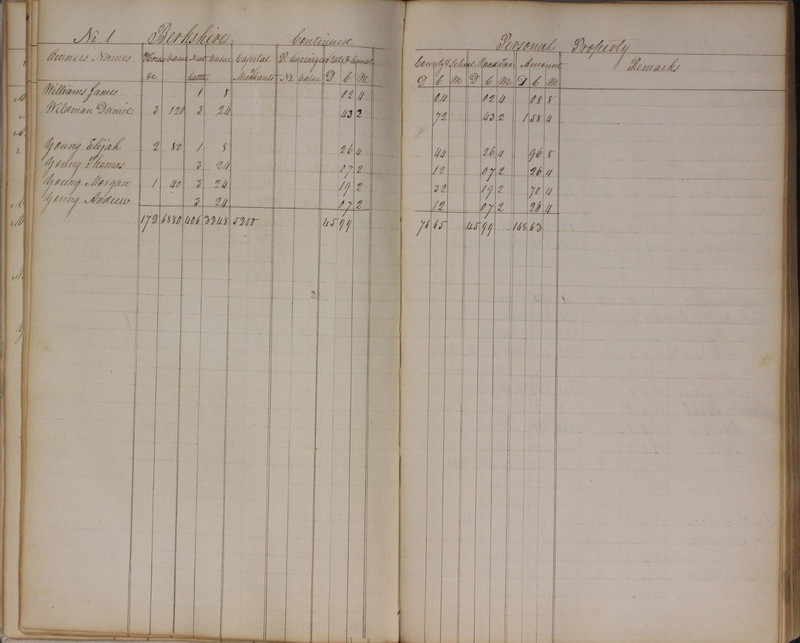 No 1 Berkshire Continued Personal Property
Owners Names Horses Value Neat Value Capital P. Carriages State & Canal County & School Road Tax Amount Remarks
&c Cattle Merchants No Value D C M D C M D C M D C M
Williams James 1 8 02 4 04 02 4 08 8
Wildman Daniel 3 120 3 24 43 2 72 43 2 1 58 4
Young Elijah 2 80 1 8 26 4 44 26 4 96 8
Young Thomas 3 24 07 2 12 07 2 26 4
Young Morgan 1 40 3 24 19 2 32 19 2 70 4
Young Andrew 3 24 07 2 12 07 2 26 4
172 6880 406 3248 5200 45 99 76 65 45 99 168 63